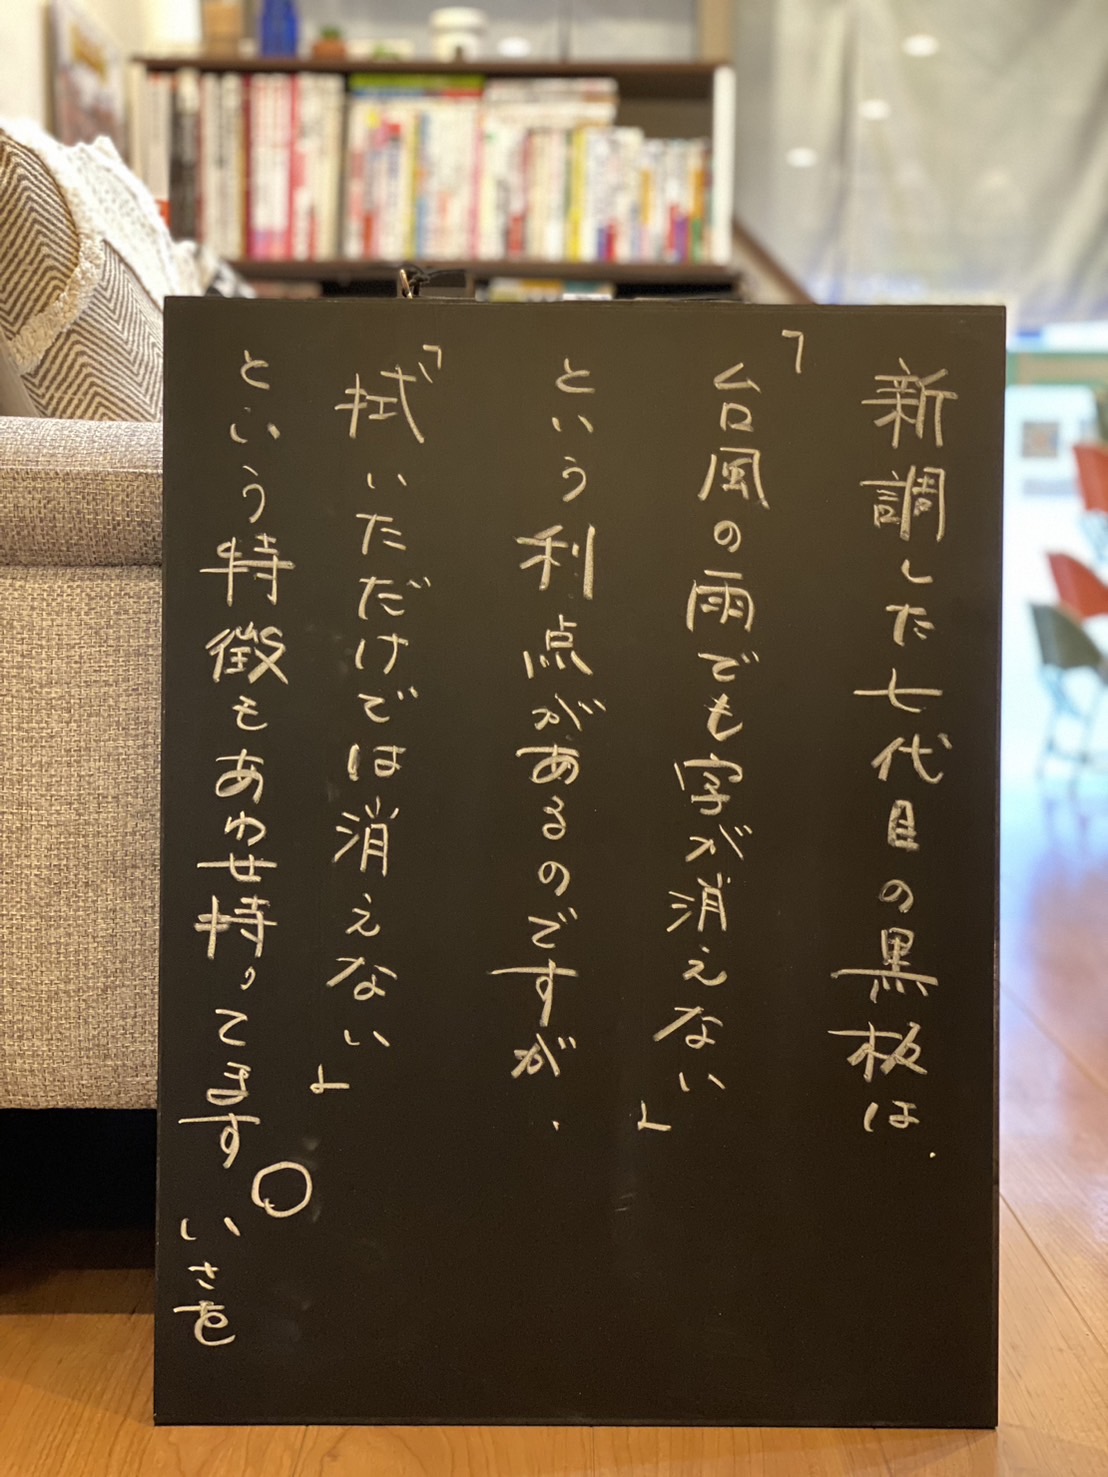 新調した七代目の黒板は、
「台風の雨でも字が消えない」
という利点があるのですが、
「拭いただけでは消えない」
という特徴もあわせ持ってます○
いさを